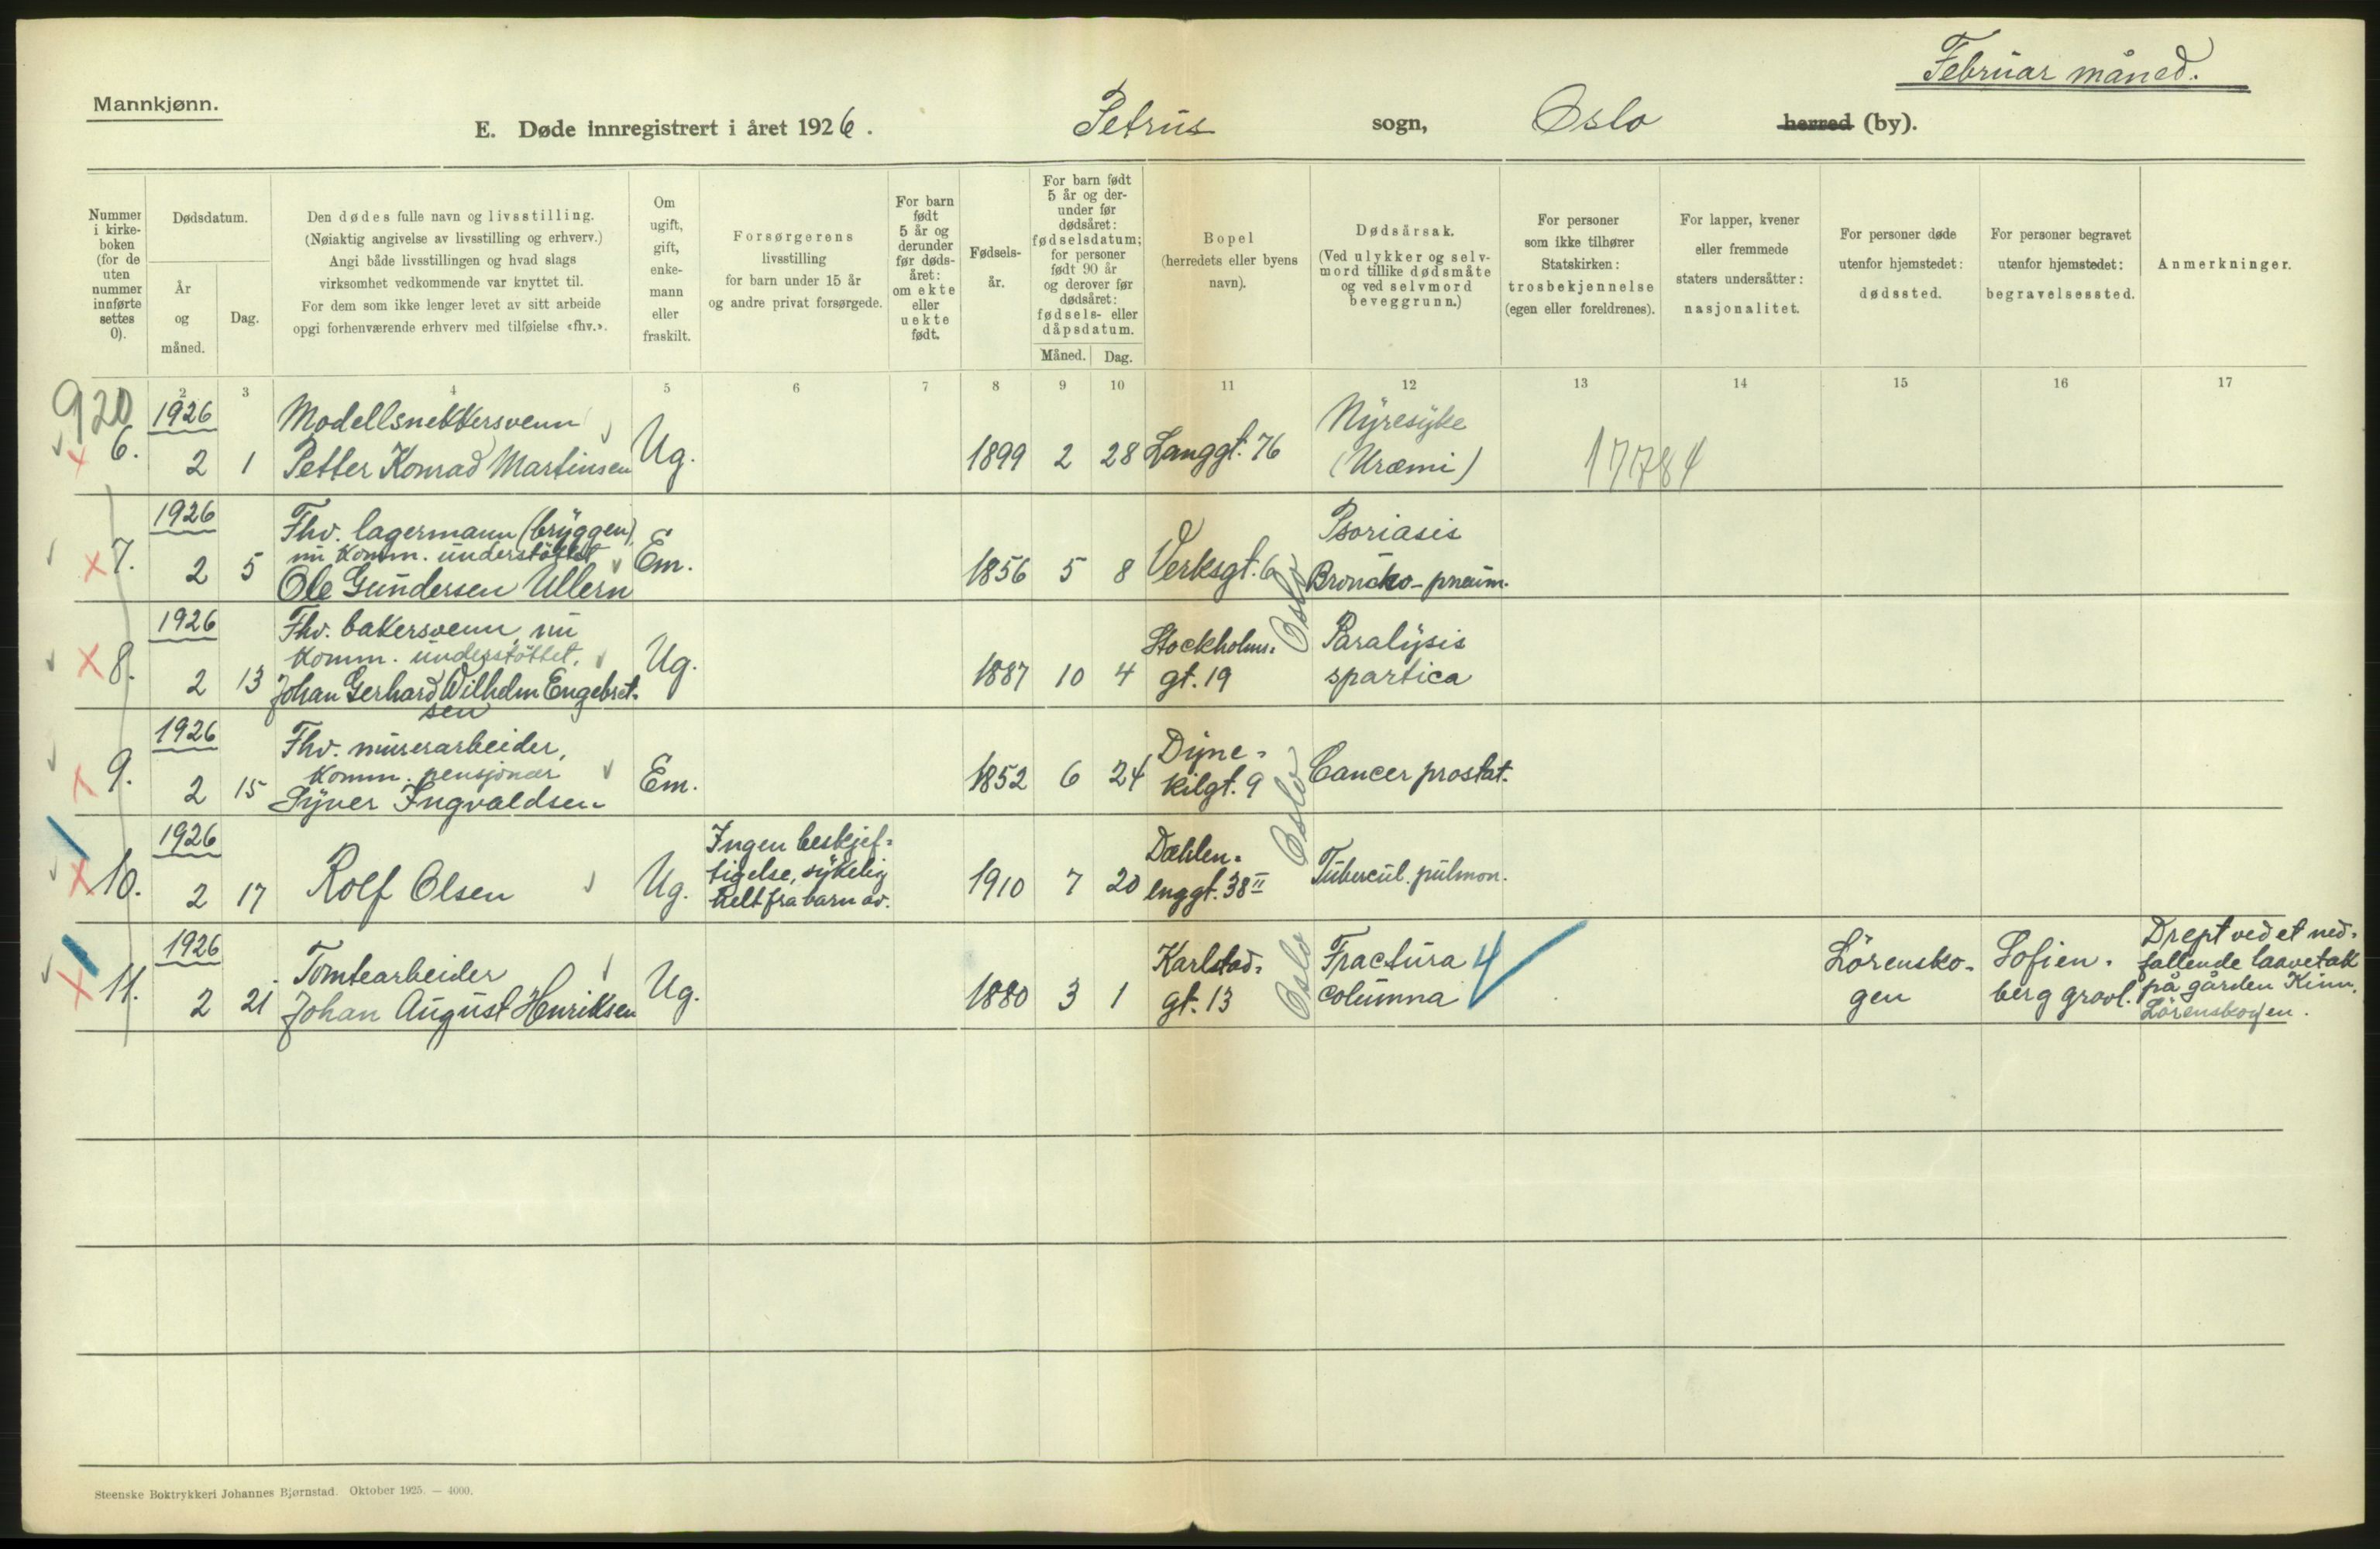 Februar måned.
Mannkjønn.
E. Døde innregistrert i året 1926. Petrus sogn, Oslo herred (by).
Nummer i kirke-boken (for de uten nummer innførte settes 0).
Dødsdatum.
År og måned.
Dag.
Den dødes fulle navn og livsstilling.
(Nøiaktig angivelse av livsstilling og erhverv.)
Angi både livsstillingen og hvad slags
virksomhet vedkommende var knyttet til.
For dem som ikke lenger levet av sitt arbeide
opgi forhenværende erhverv med tilføielse «fhv.».
Om ugift, gift, enke-mann eller fraskilt.
Forsørgerens
livsstilling
for barn under 15 år
og andre privat forsørgede.
For barn født 5 år og derunder før døds-året: om ekte eller uekte født.
Fødsels-år.
For barn født 5 år og der-under før dødsåret: fødselsdatum; for personer født 90 år og derover før dødsåret: fødsels- eller dåpsdatum.
Måned. Dag.
Bopel
(herredets eller byens
navn).
Dødsårsak.
(Ved ulykker og selv-
mord tillike dødsmåte
og ved selvmord
beveggrunn.)
For personer
som ikke tilhører
Statskirken:
trosbekjennelse
(egen eller foreldrenes).
For lapper, kvener
eller fremmede
staters undersåtter:
nasjonalitet.
For personer døde
utenfor hjemstedet:
dødssted.
For personer begravet
utenfor hjemstedet:
begravelsessted.
Anmerkninger.
2 3 4 5 6 7 8 9 10 11 12 13 14 15 16 17
920
6. 1926
2 1
Modellsnekkersvenn
Petter Konrad Martinsen
Ug. 1899 2 28 Langgt. 76
Nyresyke
(Uræmi)
17784
7. 1926
2 5
Fhv. lagermann (bryggen),
nu komm. understøttet
Ole Gundersen Ullern
Em. 1856 5 8 Verksgt. 6
Oslo
Psoriasis
Broncho-pneum.
8. 1926
2 13
Fhv. bakersvenn, nu
komm. understøttet.
Johan Gerhard Wilhelm Engebret-
sen
Ug. 1887 10 4
Stockholms-
gt. 19
Paralysis
spartica
9. 1926
2 15
Fhv. murerarbeider,
komm. pensjonær
Syver Ingvaldsen
Em. 1852 6 24
Dyne-
kilgt. 9
Oslo
Cancer prostat.
10. 1926
2 17
Rolf Olsen
Ug.
Ingen beskjef-
tigelse, sykelig
helt fra barn av.
1910 7 20
Dæhlen-
enggt. 38 II
Tubercul. pulmon.
11. 1926
2 21
Tomtearbeider
Johan August Henriksen
Ug. 1880 3 1
Karlstad-
gt. 13
Oslo
Fractura
columna
4
Lörensko-
gen
Sofien-
berg gravl.
Drept ved et ned-
fallende laavetak
på gården Kinn,
Lörenskogen.
Steenske Boktrykkeri Johannes Bjørnstad. Oktober 1925. — 4000.